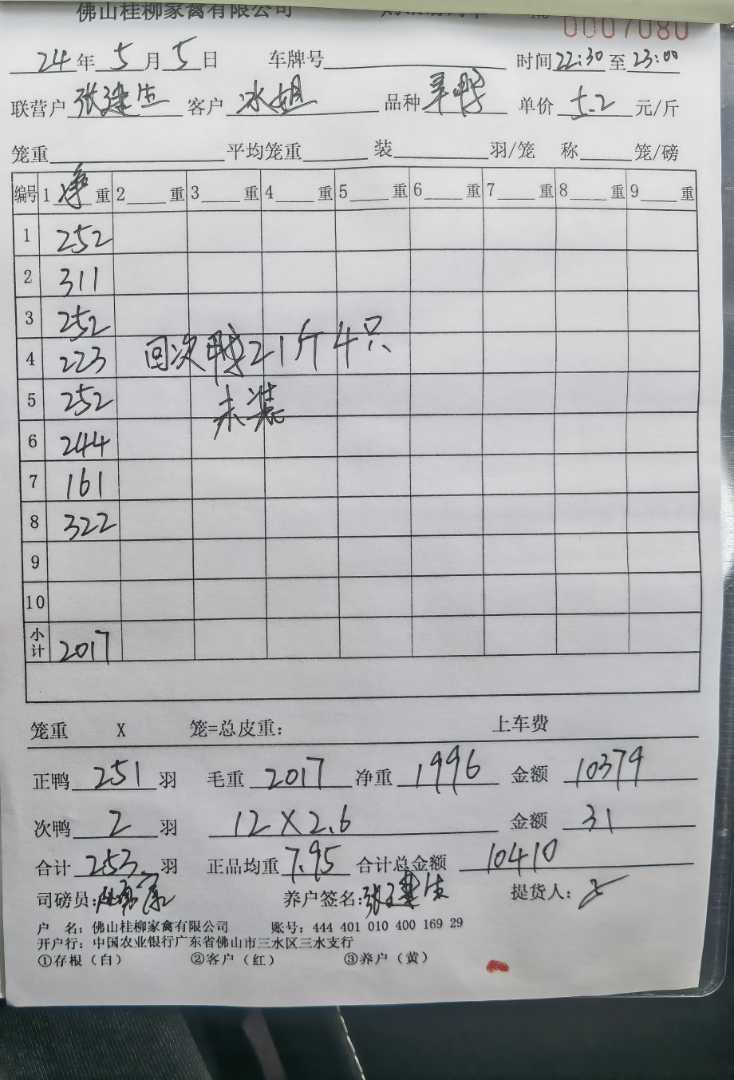 佛山桂柳家禽有限公司 0007080
24年5月5日 车牌号 时间22:30至23:00
联营户 张建生 客户 冰姐 品种 单价 5.2 元/斤
笼重 平均笼重 装 羽/笼 称 笼/磅
编号 1 净 重 2 重 3 重 4 重 5 重 6 重 7 重 8 重 9 重
1 252
2 311
3 252
4 223 回次鸭21斤4只
5 252 未装
6 244
7 161
8 322
9
10
小计 2017
笼重 X 笼=总皮重: 上车费
正鸭 251 羽 毛重 2017 净重 1996 金额 10379
次鸭 2 羽 12X2.6 金额 31
合计 253 羽 正品均重 7.95 合计总金额 10410
司磅员: 养户签名: 张建生 提货人:
户 名: 佛山桂柳家禽有限公司 账号: 444 401 010 400 169 29
开户行: 中国农业银行广东省佛山市三水区三水支行
①存根（白） ②客户（红） ③养户（黄）